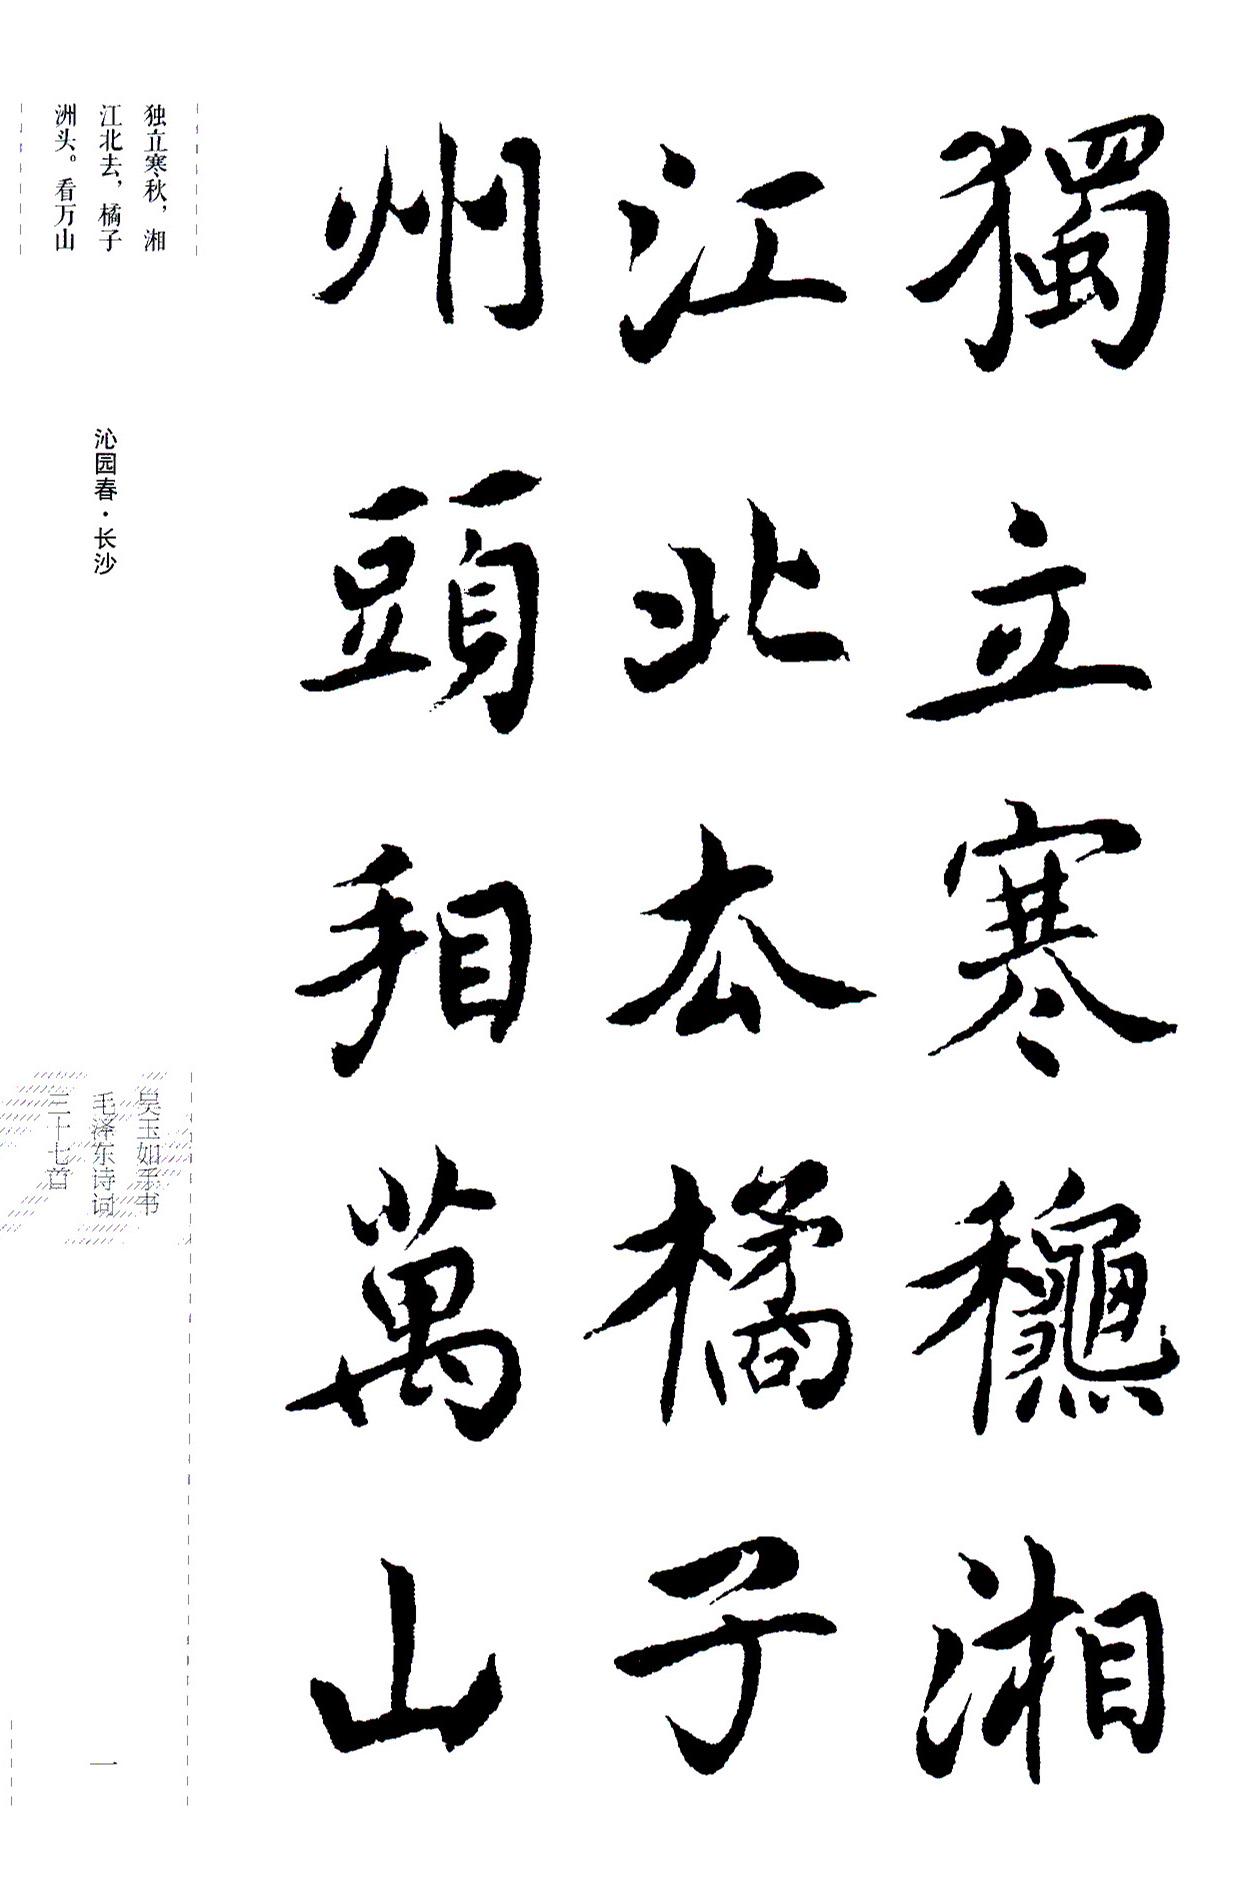 獨立寒𥤛湘
江北去橘子
州頭看萬山
独立寒秋，湘
江北去，橘子
洲头。看万山
沁园春·长沙
吴玉如手书
毛泽东诗词
三十七首
一